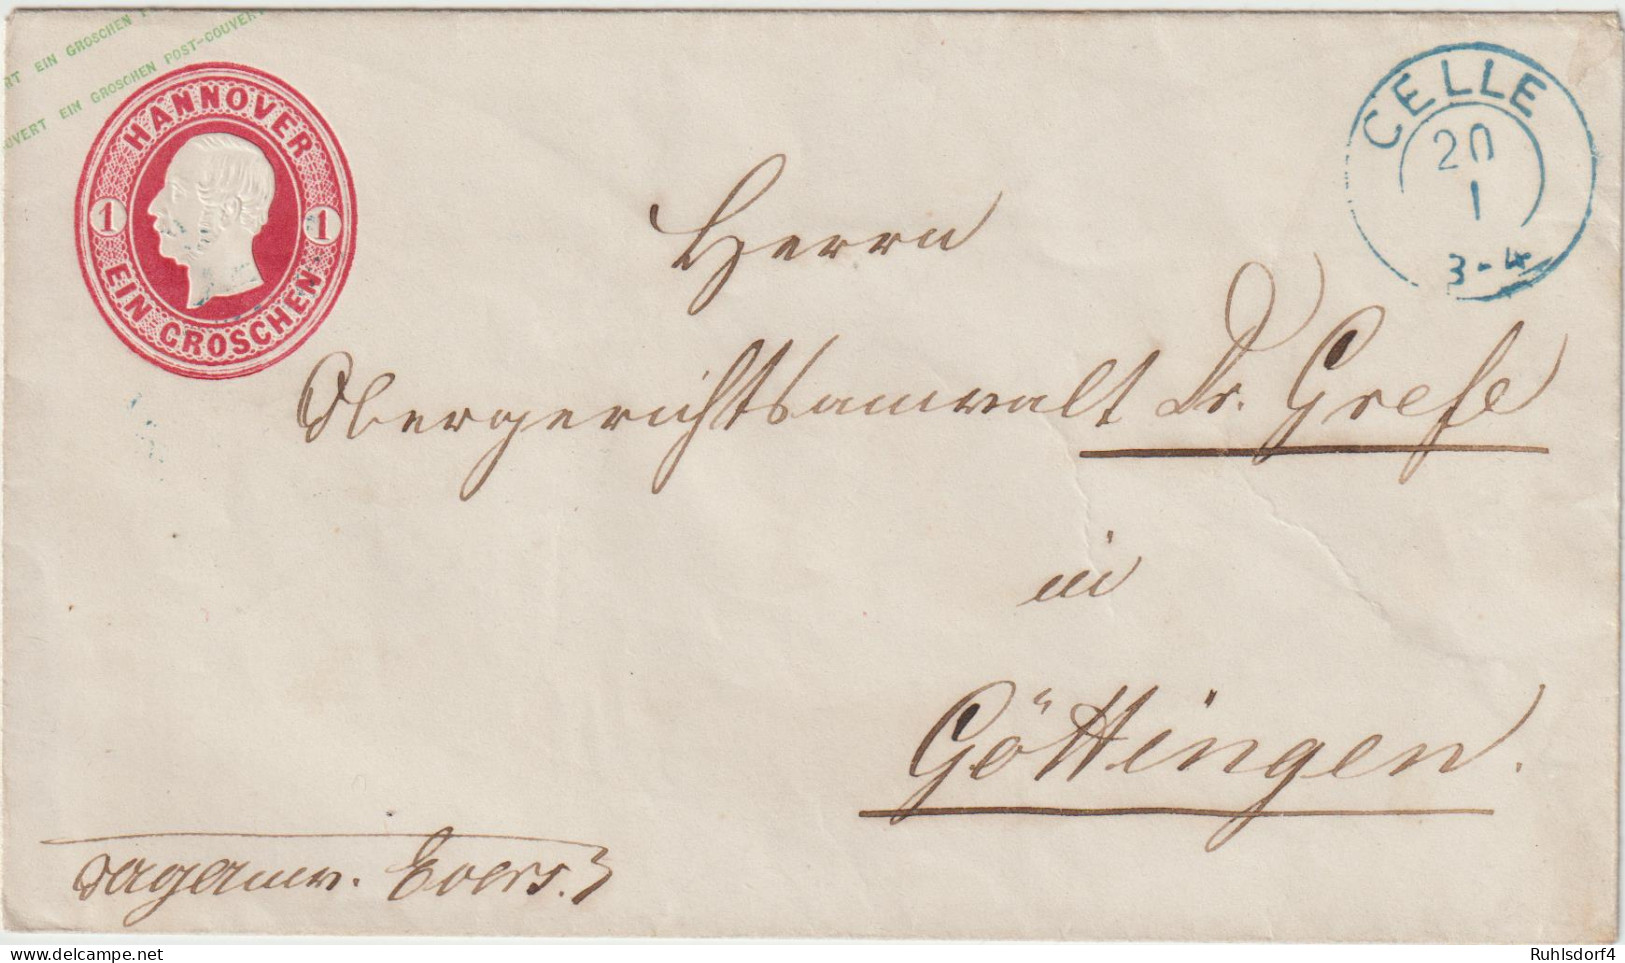 RT EIN GROSCHEN
OUVERT EIN GROSCHEN POST-COUVERT
HANNOVER
1 1
EIN GROSCHEN
CELLE
20
1
3-4
Herrn
Obergerichtsanwalt Dr. Grefe
in
Göttingen.
Evers.
Ruhlsdorf4